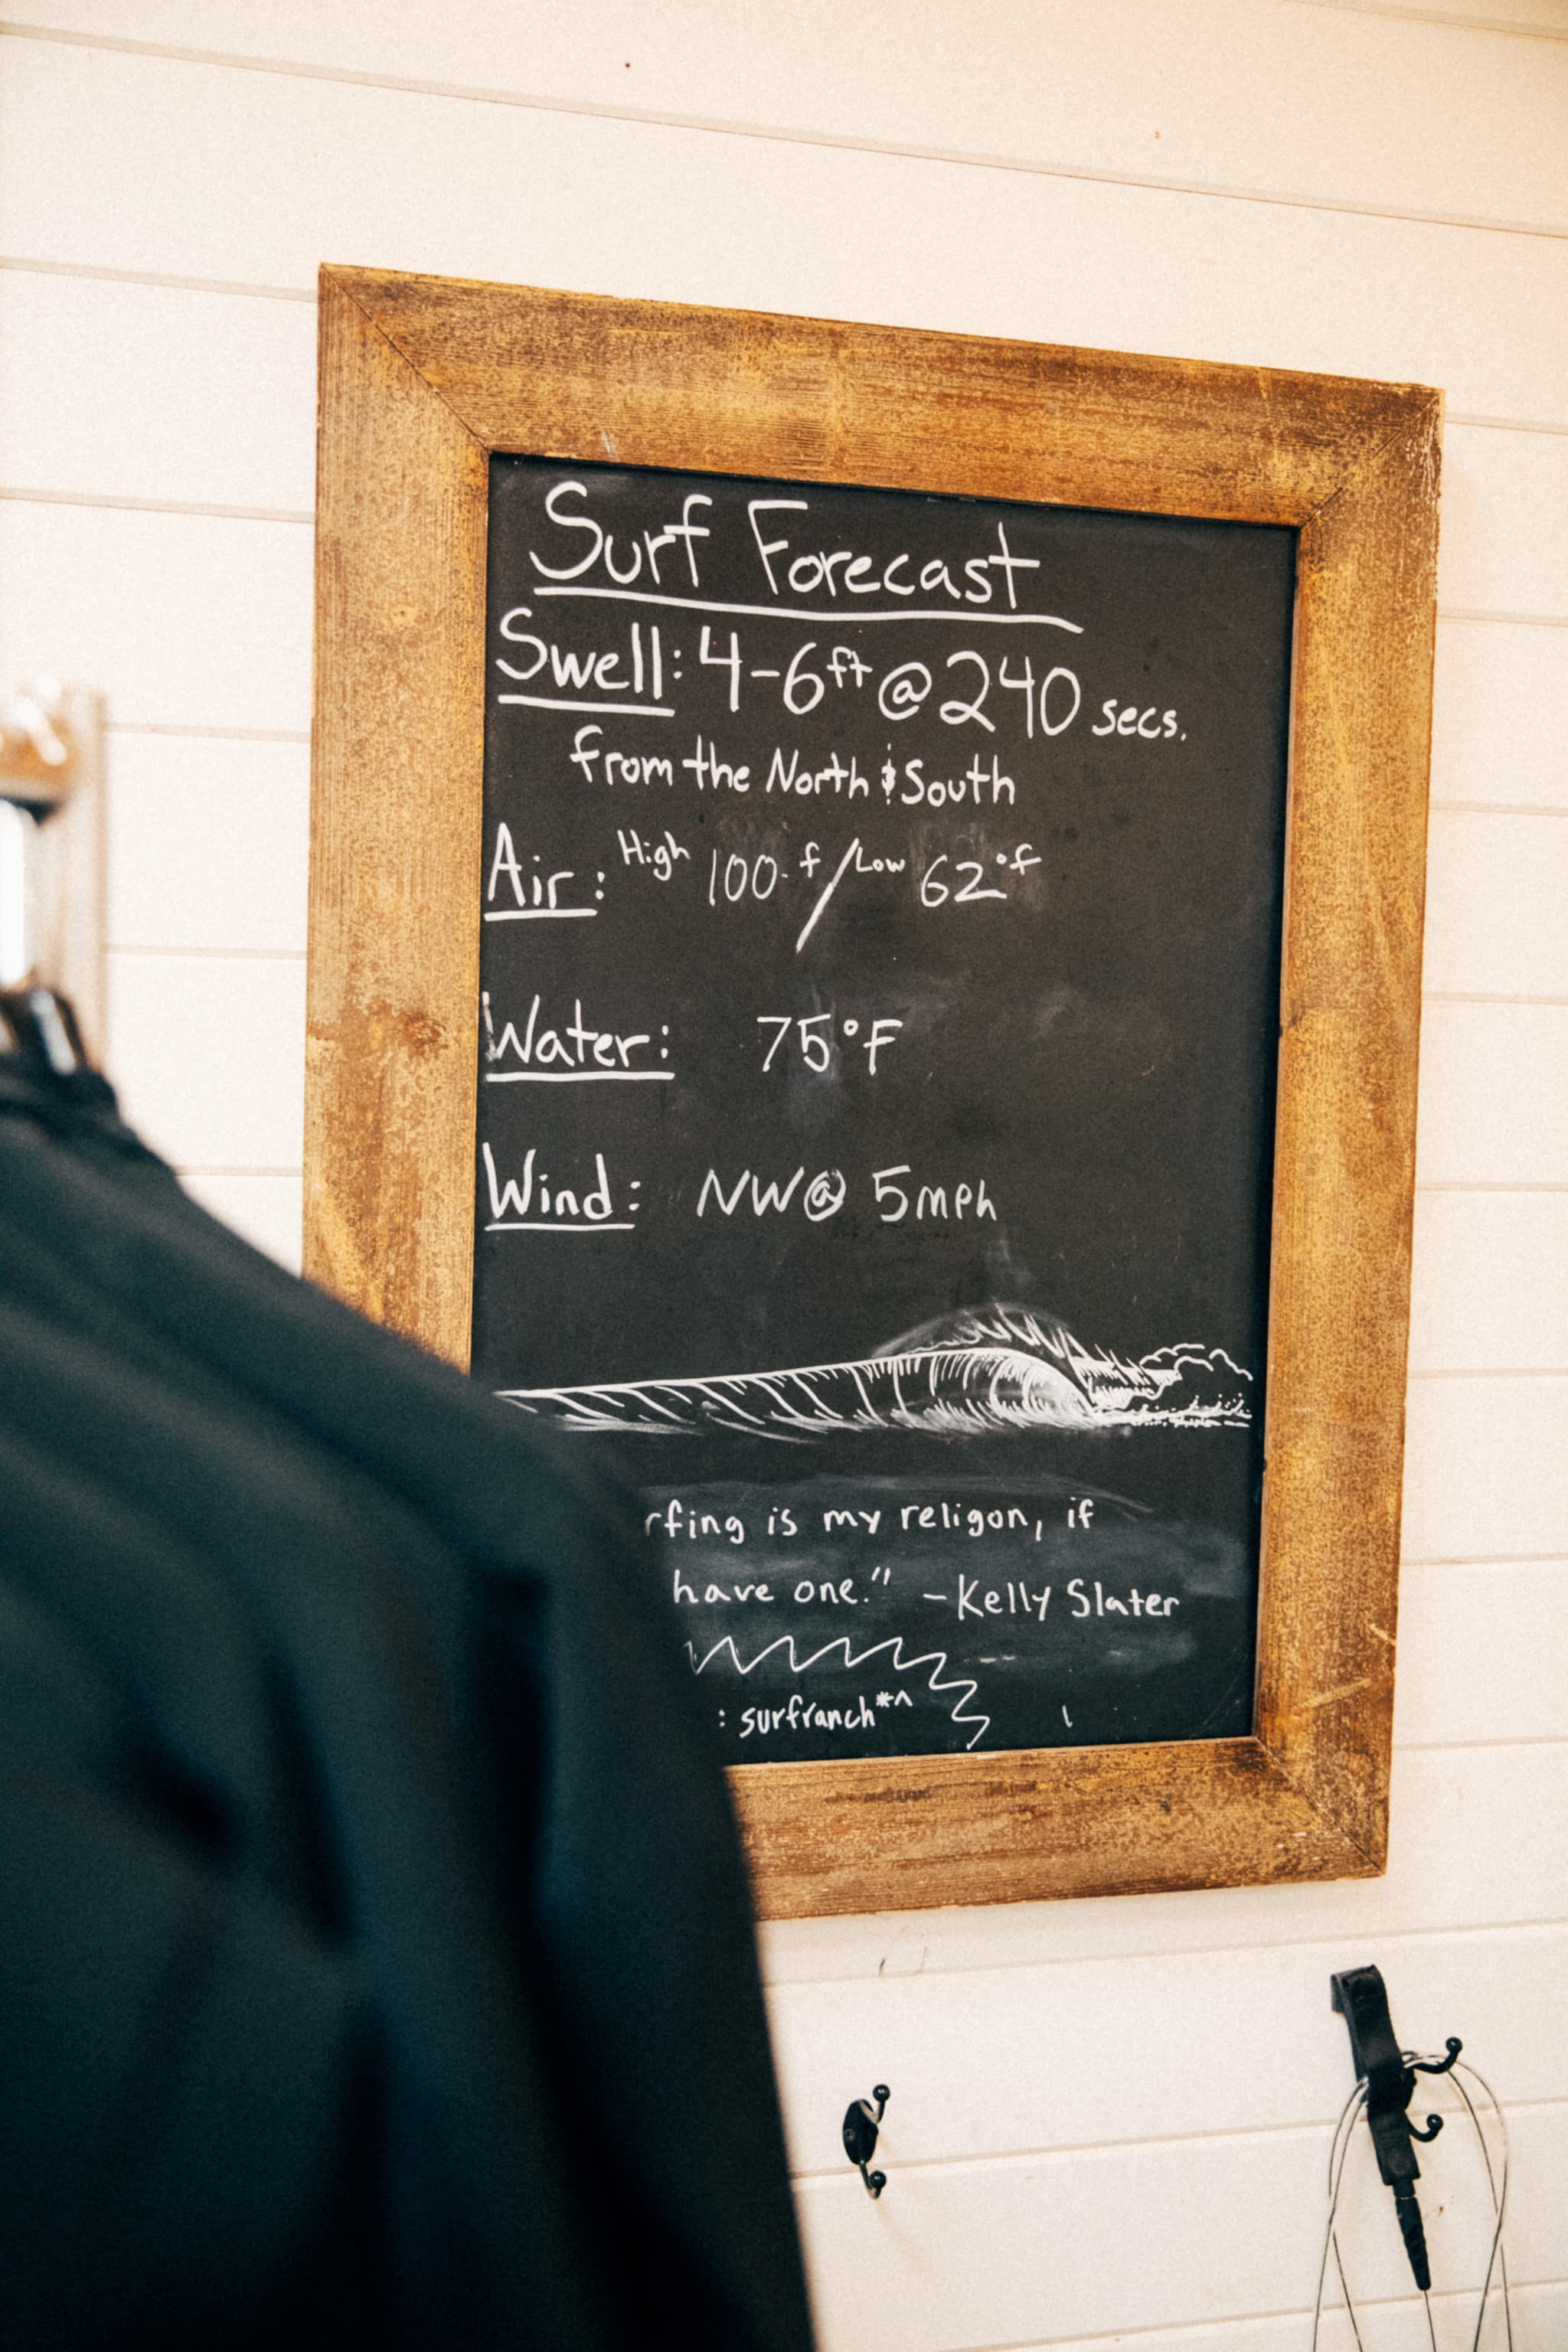 Surf Forecast
Swell: 4-6ft @ 240 secs.
from the North & South
Air: High 100°f / Low 62°f
Water: 75°F
Wind: NW @ 5mph
rfing is my religon, if
have one." -Kelly Slater
: surfranch*^